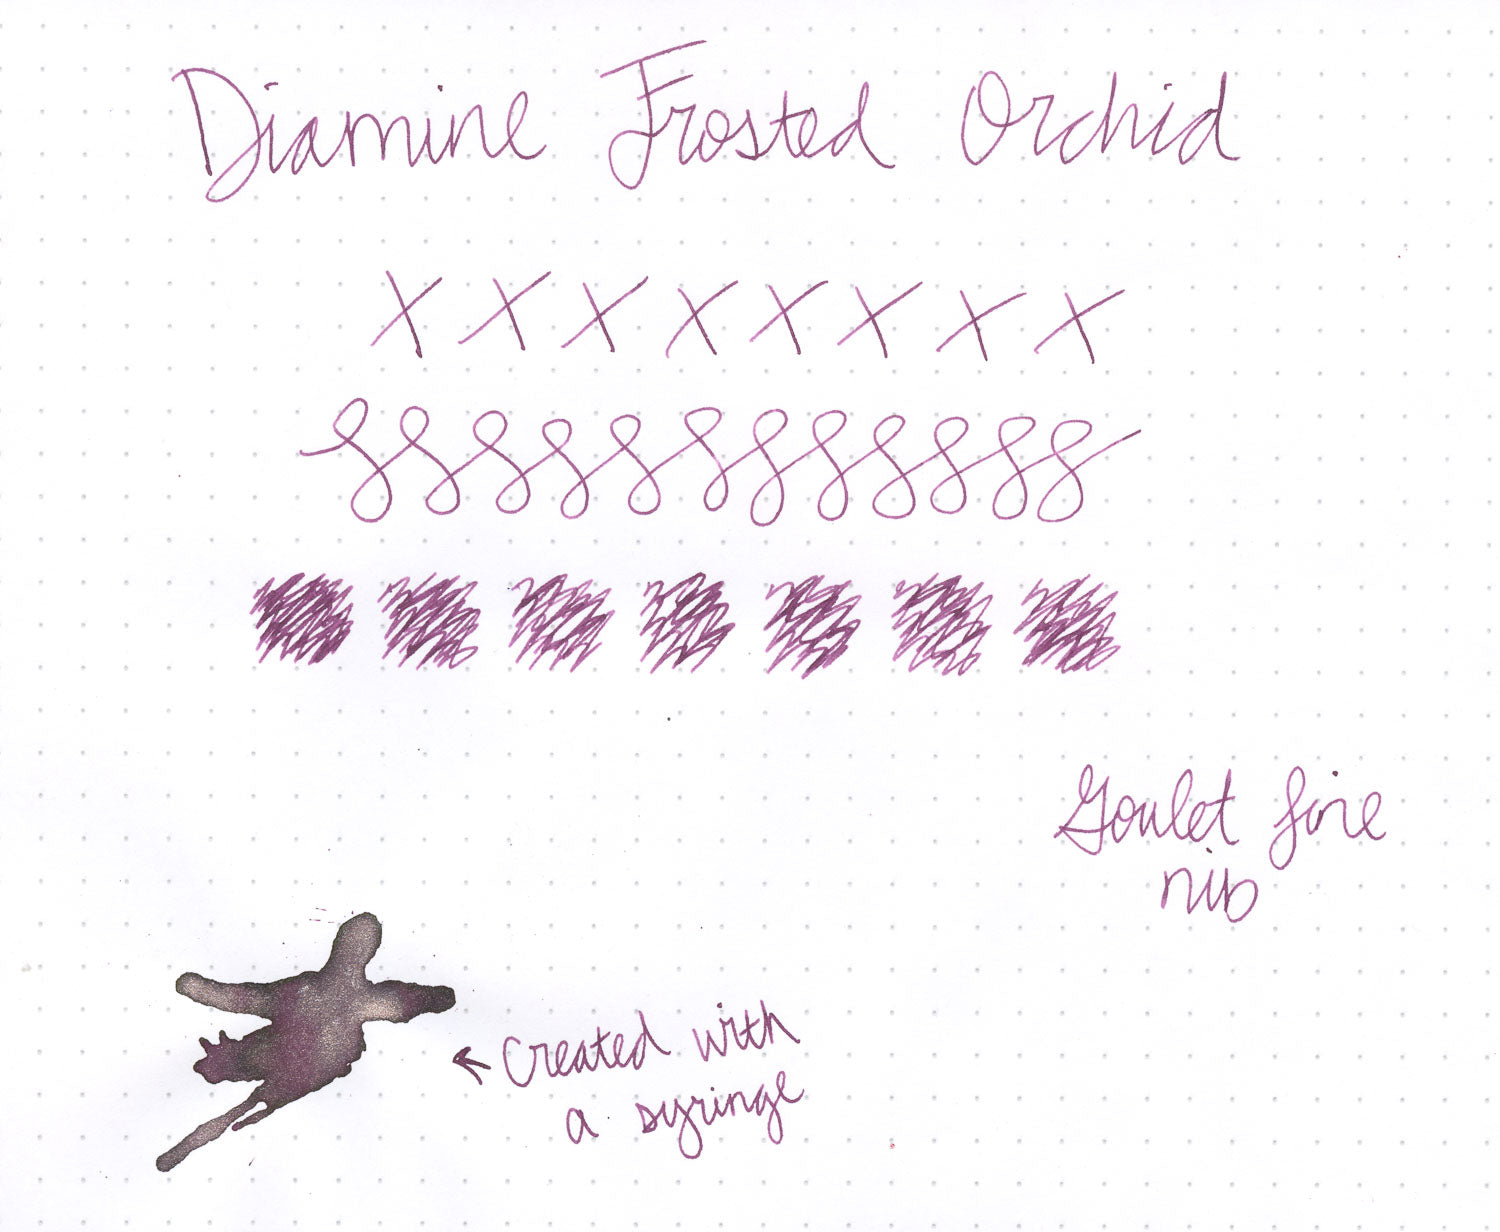 Diamine Frosted Orchid
x x x x x x x x
Goulet fine
nib
← created with
a syringe